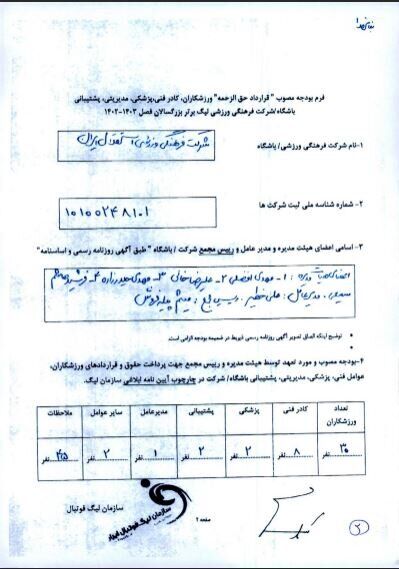 فرم بودجه مصوب " قرارداد حق الزحمه" ورزشکاران، کادر فنی،پزشکی، مدیریتی، پشتیبانی
باشگاه/شرکت فرهنگی ورزشی لیگ برتر بزرگسالان فصل ۱۴۰۳-۱۴۰۲
۱-نام شرکت فرهنگی ورزشی/ باشگاه
شرکت فرهنگی ورزشی استقلال ایران
۲- شماره شناسه ملی ثبت شرکت ها
۱۰۱۰۰۲۴۸۱۰۱
۳- اسامی اعضای هیئت مدیره و مدیر عامل و رییس مجمع شرکت / باشگاه " طبق آگهی روزنامه رسمی و اساسنامه"
اعضای هیات مدیره : ۱- مهدی افضلی ۲- علیرضا ۳- مهدی ۴- فرشید
مدیرعامل : علی خطیر . رییس مجمع : میثم
توضیح اینکه الصاق تصویر آگهی روزنامه رسمی ذیربط در ضمیمه بودجه الزامی است.
۴-بودجه مصوب و مورد تعهد توسط هیئت مدیره و رییس مجمع جهت پرداخت حقوق و قراردادهای ورزشکاران،
عوامل فنی، پزشکی، مدیریتی، پشتیبانی باشگاه/ شرکت در چارچوب آیین نامه ابلاغی سازمان لیگ.
تعداد ورزشکاران کادر فنی پزشکی پشتیبانی مدیرعامل سایر عوامل ملاحظات
۳۰ نفر ۸ نفر ۲ نفر ۲ نفر ۱ نفر ۲ نفر ۴۵ نفر
سازمان لیگ فوتبال
سازمان لیگ فوتبال ایران
صفحه ۱